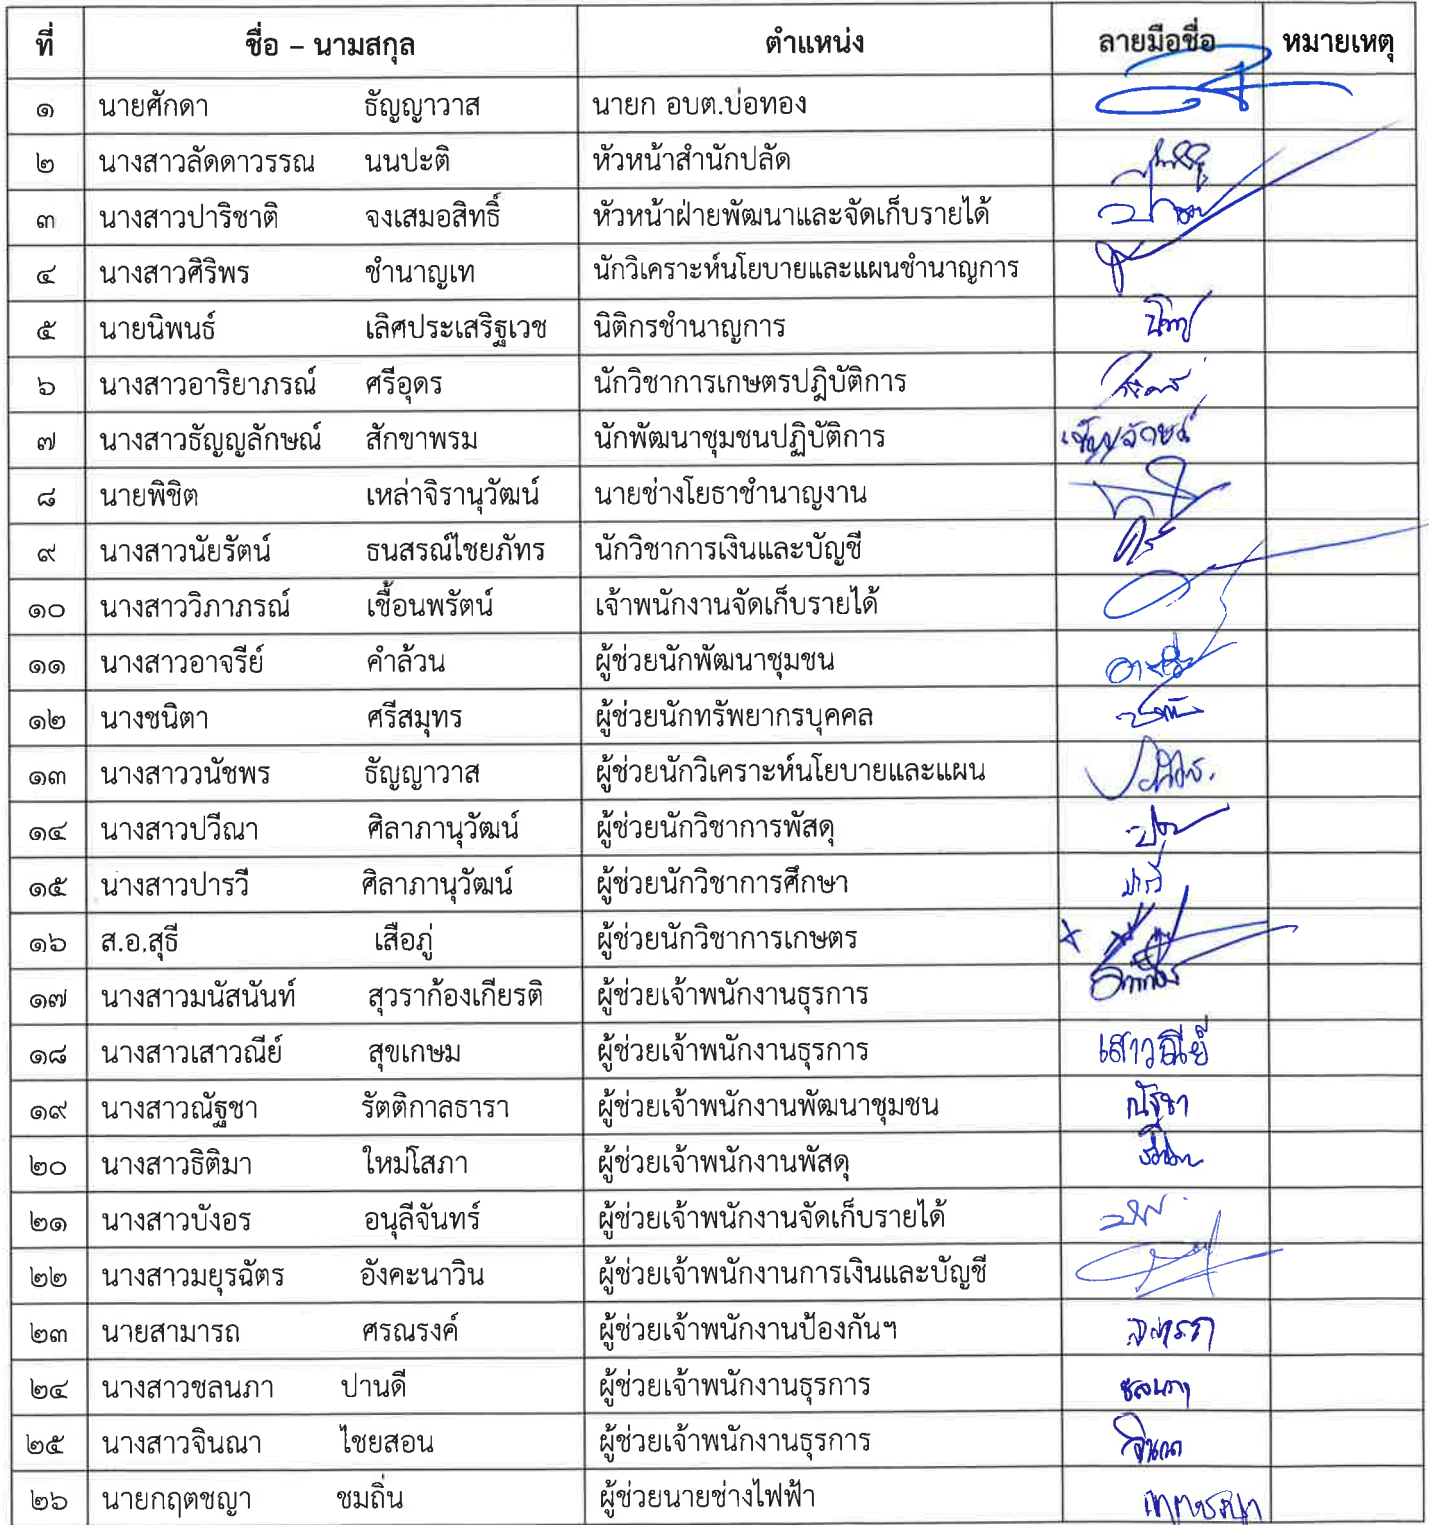 ที่ ชื่อ – นามสกุล ตำแหน่ง ลายมือชื่อ หมายเหตุ
๑ นายศักดา ธัญญาวาส นายก อบต.บ่อทอง
๒ นางสาวลัดดาวรรณ นนปะติ หัวหน้าสำนักปลัด
๓ นางสาวปาริชาติ จงเสมอสิทธิ์ หัวหน้าฝ่ายพัฒนาและจัดเก็บรายได้
๔ นางสาวศิริพร ชำนาญเท นักวิเคราะห์นโยบายและแผนชำนาญการ
๕ นายนิพนธ์ เลิศประเสริฐเวช นิติกรชำนาญการ
๖ นางสาวอาริยาภรณ์ ศรีอุดร นักวิชาการเกษตรปฎิบัติการ
๗ นางสาวธัญญลักษณ์ สักขาพรม นักพัฒนาชุมชนปฏิบัติการ ธัญญลักษณ์
๘ นายพิชิต เหล่าจิรานุวัฒน์ นายช่างโยธาชำนาญงาน
๙ นางสาวนัยรัตน์ ธนสรณ์ไชยภัทร นักวิชาการเงินและบัญชี
๑๐ นางสาววิภาภรณ์ เชื้อนพรัตน์ เจ้าพนักงานจัดเก็บรายได้
๑๑ นางสาวอาจรีย์ คำล้วน ผู้ช่วยนักพัฒนาชุมชน
๑๒ นางชนิตา ศรีสมุทร ผู้ช่วยนักทรัพยากรบุคคล
๑๓ นางสาววนัชพร ธัญญาวาส ผู้ช่วยนักวิเคราะห์นโยบายและแผน
๑๔ นางสาวปวีณา ศิลาภานุวัฒน์ ผู้ช่วยนักวิชาการพัสดุ
๑๕ นางสาวปารวี ศิลาภานุวัฒน์ ผู้ช่วยนักวิชาการศึกษา ปารวี
๑๖ ส.อ.สุธี เสือภู่ ผู้ช่วยนักวิชาการเกษตร
๑๗ นางสาวมนัสนันท์ สุวราก้องเกียรติ ผู้ช่วยเจ้าพนักงานธุรการ
๑๘ นางสาวเสาวณีย์ สุขเกษม ผู้ช่วยเจ้าพนักงานธุรการ เสาวณีย์
๑๙ นางสาวณัฐชา รัตติกาลธารา ผู้ช่วยเจ้าพนักงานพัฒนาชุมชน ณัฐชา
๒๐ นางสาวธิติมา ใหม่โสภา ผู้ช่วยเจ้าพนักงานพัสดุ
๒๑ นางสาวบังอร อนุลีจันทร์ ผู้ช่วยเจ้าพนักงานจัดเก็บรายได้
๒๒ นางสาวมยุรฉัตร อังคะนาวิน ผู้ช่วยเจ้าพนักงานการเงินและบัญชี
๒๓ นายสามารถ ศรณรงค์ ผู้ช่วยเจ้าพนักงานป้องกันฯ สามารถ
๒๔ นางสาวชลนภา ปานดี ผู้ช่วยเจ้าพนักงานธุรการ ชลนภา
๒๕ นางสาวจินณา ไชยสอน ผู้ช่วยเจ้าพนักงานธุรการ จินณา
๒๖ นายกฤตชญา ชมถิ่น ผู้ช่วยนายช่างไฟฟ้า กฤตชญา